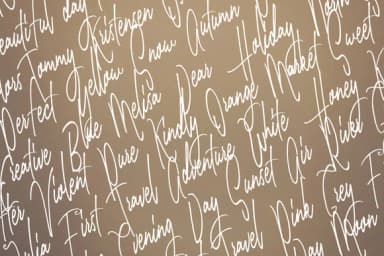 Beautiful day
Tommy Kristensen
Perfect Yellow Snow Autumn
Creative Blue Melisa Dear Holiday
Violent Pure Kindly Orange Market Sweet
First Travel Adventure White Honey
Evening Day Sunset Air
Travel Pink Grey
Day Moon